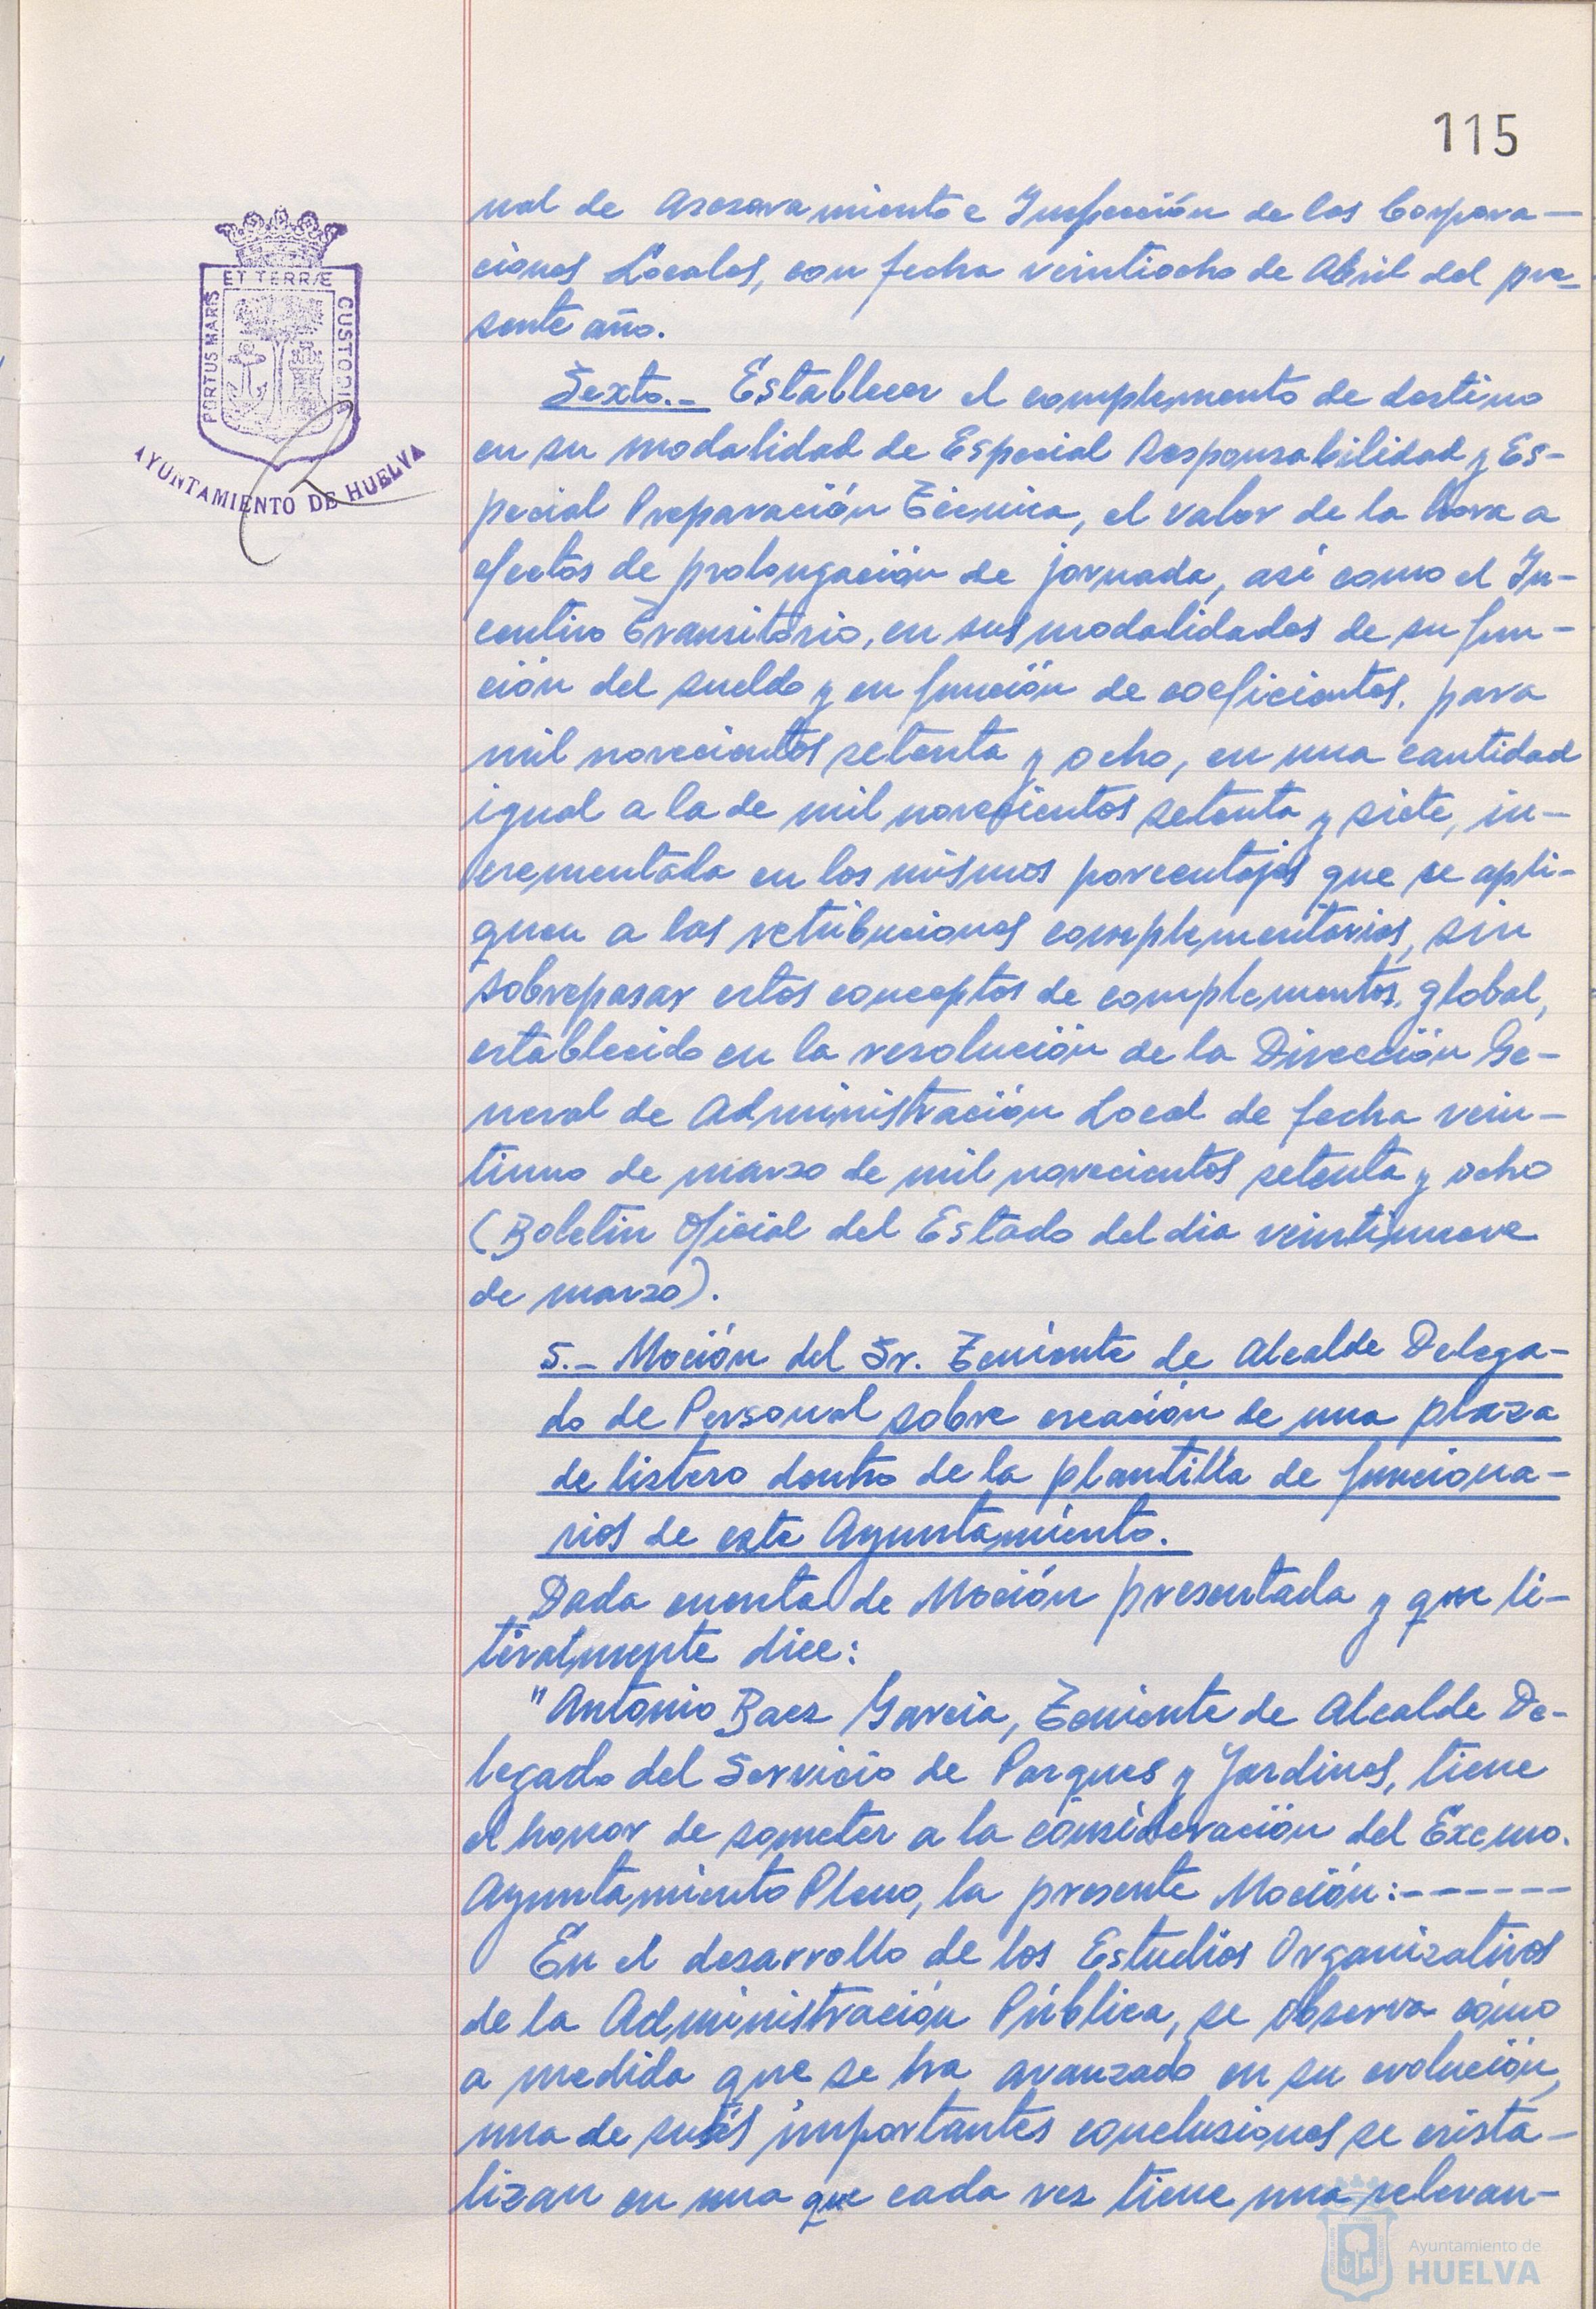 115
nal de Asesoramiento e Inspección de las Corpora-
ciones Locales, con fecha veintiocho de Abril del pre-
sente año.
Sexto.- Establecer el complemento de destino
en su modalidad de Especial Responsabilidad y Es-
pecial Preparación Técnica, el valor de la hora a
efectos de prolongación de jornada, así como el In-
centivo Transitorio, en sus modalidades de su fun-
ción del sueldo y en función de coeficientes, para
mil novecientos setenta y ocho, en una cantidad
igual a la de mil novecientos setenta y siete, in-
crementada en los mismos porcentajes que se apli-
quen a las retribuciones complementarias, sin
sobrepasar estos conceptos de complementos, global,
establecido en la resolución de la Dirección Ge-
neral de Administración Local de fecha vein-
tiuno de marzo de mil novecientos setenta y ocho
(Boletin Oficial del Estado del dia veintinueve
de marzo).
5.- Moción del Sr. Teniente de Alcalde Delega-
do de Personal sobre creación de una plaza
de listero dentro de la plantilla de funciona-
rios de este Ayuntamiento.
Dada cuenta de Moción presentada y que li-
teralmente dice:
"Antonio Baez Garcia, Teniente de Alcalde De-
legado del Servicio de Parques y Jardines, tiene
el honor de someter a la consideración del Excmo.
Ayuntamiento Pleno, la presente Moción:------
En el desarrollo de los Estudios Organizativos
de la Administración Pública, se observa cómo
a medida que se ha avanzado en su evolución,
una de sus importantes conclusiones se crista-
lizan en una que cada vez tiene una relevan-
PORTUS MARIS
ET TERRÆ
CUSTODIA
AYUNTAMIENTO DE HUELVA
Ayuntamiento de
HUELVA